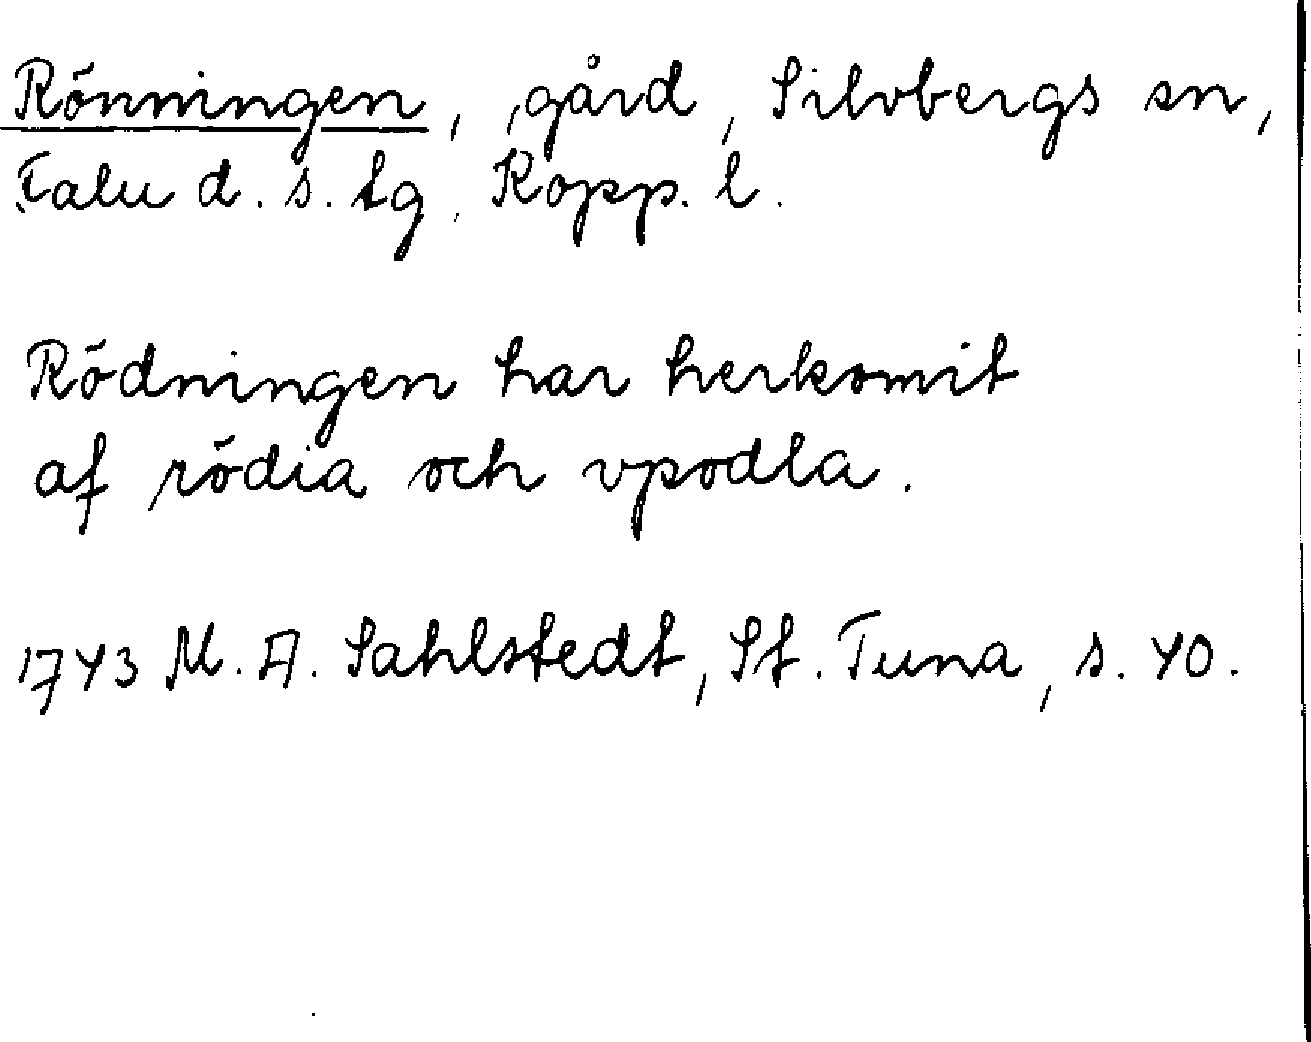 Rönningen, gård, Silvbergs sn,
Falu d. s. tg, Kopp. l.
Rödningen har herkomit
af rödia och vpodla.
1743 M. A. Sahlstedt, St. Tuna, s. 40.